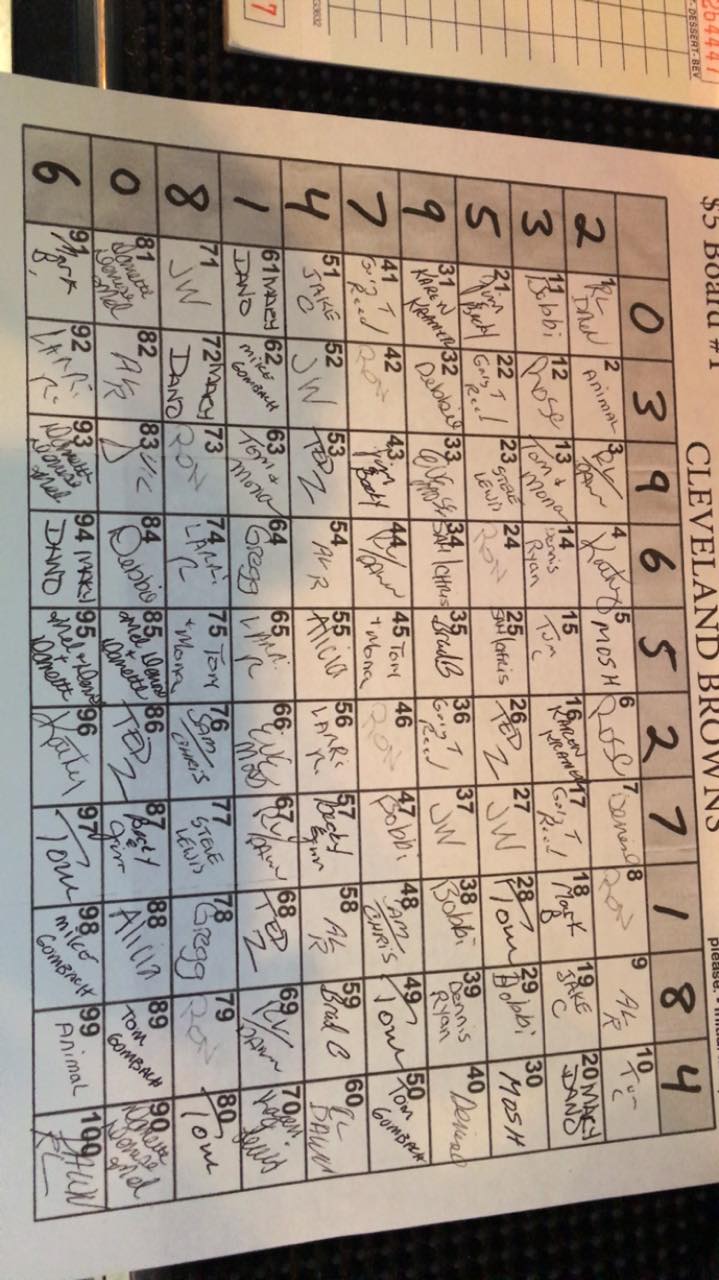 204447
T-DESSERT-BEV
7
$5 Board #1
please.
CLEVELAND BROWNS
0 3 9 6 5 2 7 1 8 4
2
1 RL DAWN
2 ANIMAL
3 RL DAWN
4 Kathy
5 MOSH
6 ROSE
7 Denise
8 RON
9 AL R
10 Tim C
3
11 Bobbi
12 ROSE
13 Tom + Mona
14 Dennis Ryan
15 Tim C
16 KAREN KRAMER
17 Guy T Reed
18 Mark B
19 JAKE C
20 MARY DANO
5
21
22 Guy T Reed
23 STEVE LEWIS
24 RON
25 SAM CHRIS
26 TED Z
27 JW
28 Tom
29 Bobbi
30 MOSH
9
31 KAREN KRAMER
32 Debbie
33
34 SAM/CHRIS
35 Brad B
36 Guy T Reed
37 JW
38 Bobbi
39 Dennis Ryan
40 Denise
7
41 Guy T Reed
42 RON
43
44 RL/DAWN
45 Tom + Mona
46 RON
47 Bobbi
48 SAM CHRIS
49 Tom
50 TOM GOMBACH
4
51 JAKE C
52 JW
53 TED Z
54 AL R
55 Alicia
56 LARRI R.
57 Becky
58 AL R
59 Brad C
60 RL DAWN
1
61 MARY DANO
62 MIKE GOMBACH
63 Tom + Mona
64 Gregg
65 LARRI R
66
67 RL/DAWN
68 TED Z
69 RL/DAWN
70 Lewis
8
71 JW
72 MARY DANO
73 RON
74 LARRI R
75 Tom + Mona
76 SAM CHRIS
77 STEVE LEWIS
78 Gregg
79 RON
80 Tom
0
81 Donette Denise Mel
82 AL R
83
84 Debbie
85 Mel Denise + Donette
86 TED Z
87
88 Alicia
89 TOM GOMBACH
90 Donette Denise Mel
6
91 Mark B.
92 LARRI R.
93 Donette Denise Mel
94 MARY DANO
95 Mel + Denise + Donette
96 Kathy
97 Tom
98 MIKE GOMBACH
99 Animal
100 DAWN RL